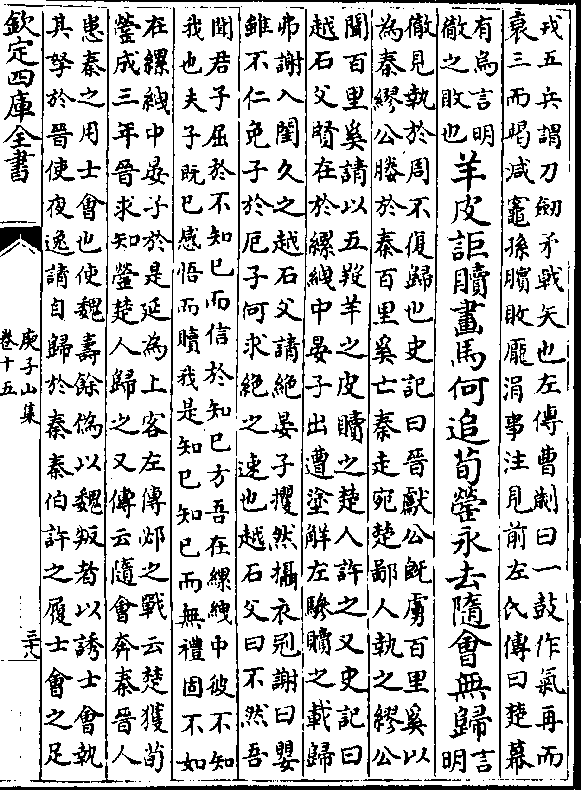 戎五兵謂刀劒矛戟矢也左傳曹劌曰一鼓作氣再而
衰三而竭减竈孫臏敗龎涓事注見前左氏傳曰楚幕
有烏言明
徹之敗也
羊皮詎贖畫馬何追荀罃永去隨會無歸
言
明
徹見執於周不復歸也史記曰晉獻公旣虜百里奚以
為秦繆公媵於秦百里奚亡秦走宛楚鄙人執之繆公
聞百里奚請以五羖羊之皮贖之楚人許之又史記曰
越石父賢在於縲絏中晏子出遭塗解左驂贖之載歸
弗謝入閨久之越石父請絕晏子戄然攝衣冠謝曰嬰
雖不仁免子於厄子何求絕之速也越石父曰不然吾
聞君子屈於不知已而信於知已方吾在縲絏中彼不知
我也夫子旣已感悟而贖我是知已知已而無禮固不如
在縲絏中晏子於是延為上客左傳邲之戰云楚獲荀
罃成三年晉求知罃楚人歸之又傳云隨會奔秦晉人
患秦之用士會也使魏壽餘偽以魏叛者以誘士會執
其孥於晉使夜逸請自歸於秦秦伯許之履士會之足
欽定四庫全書
庾子山集
卷十五